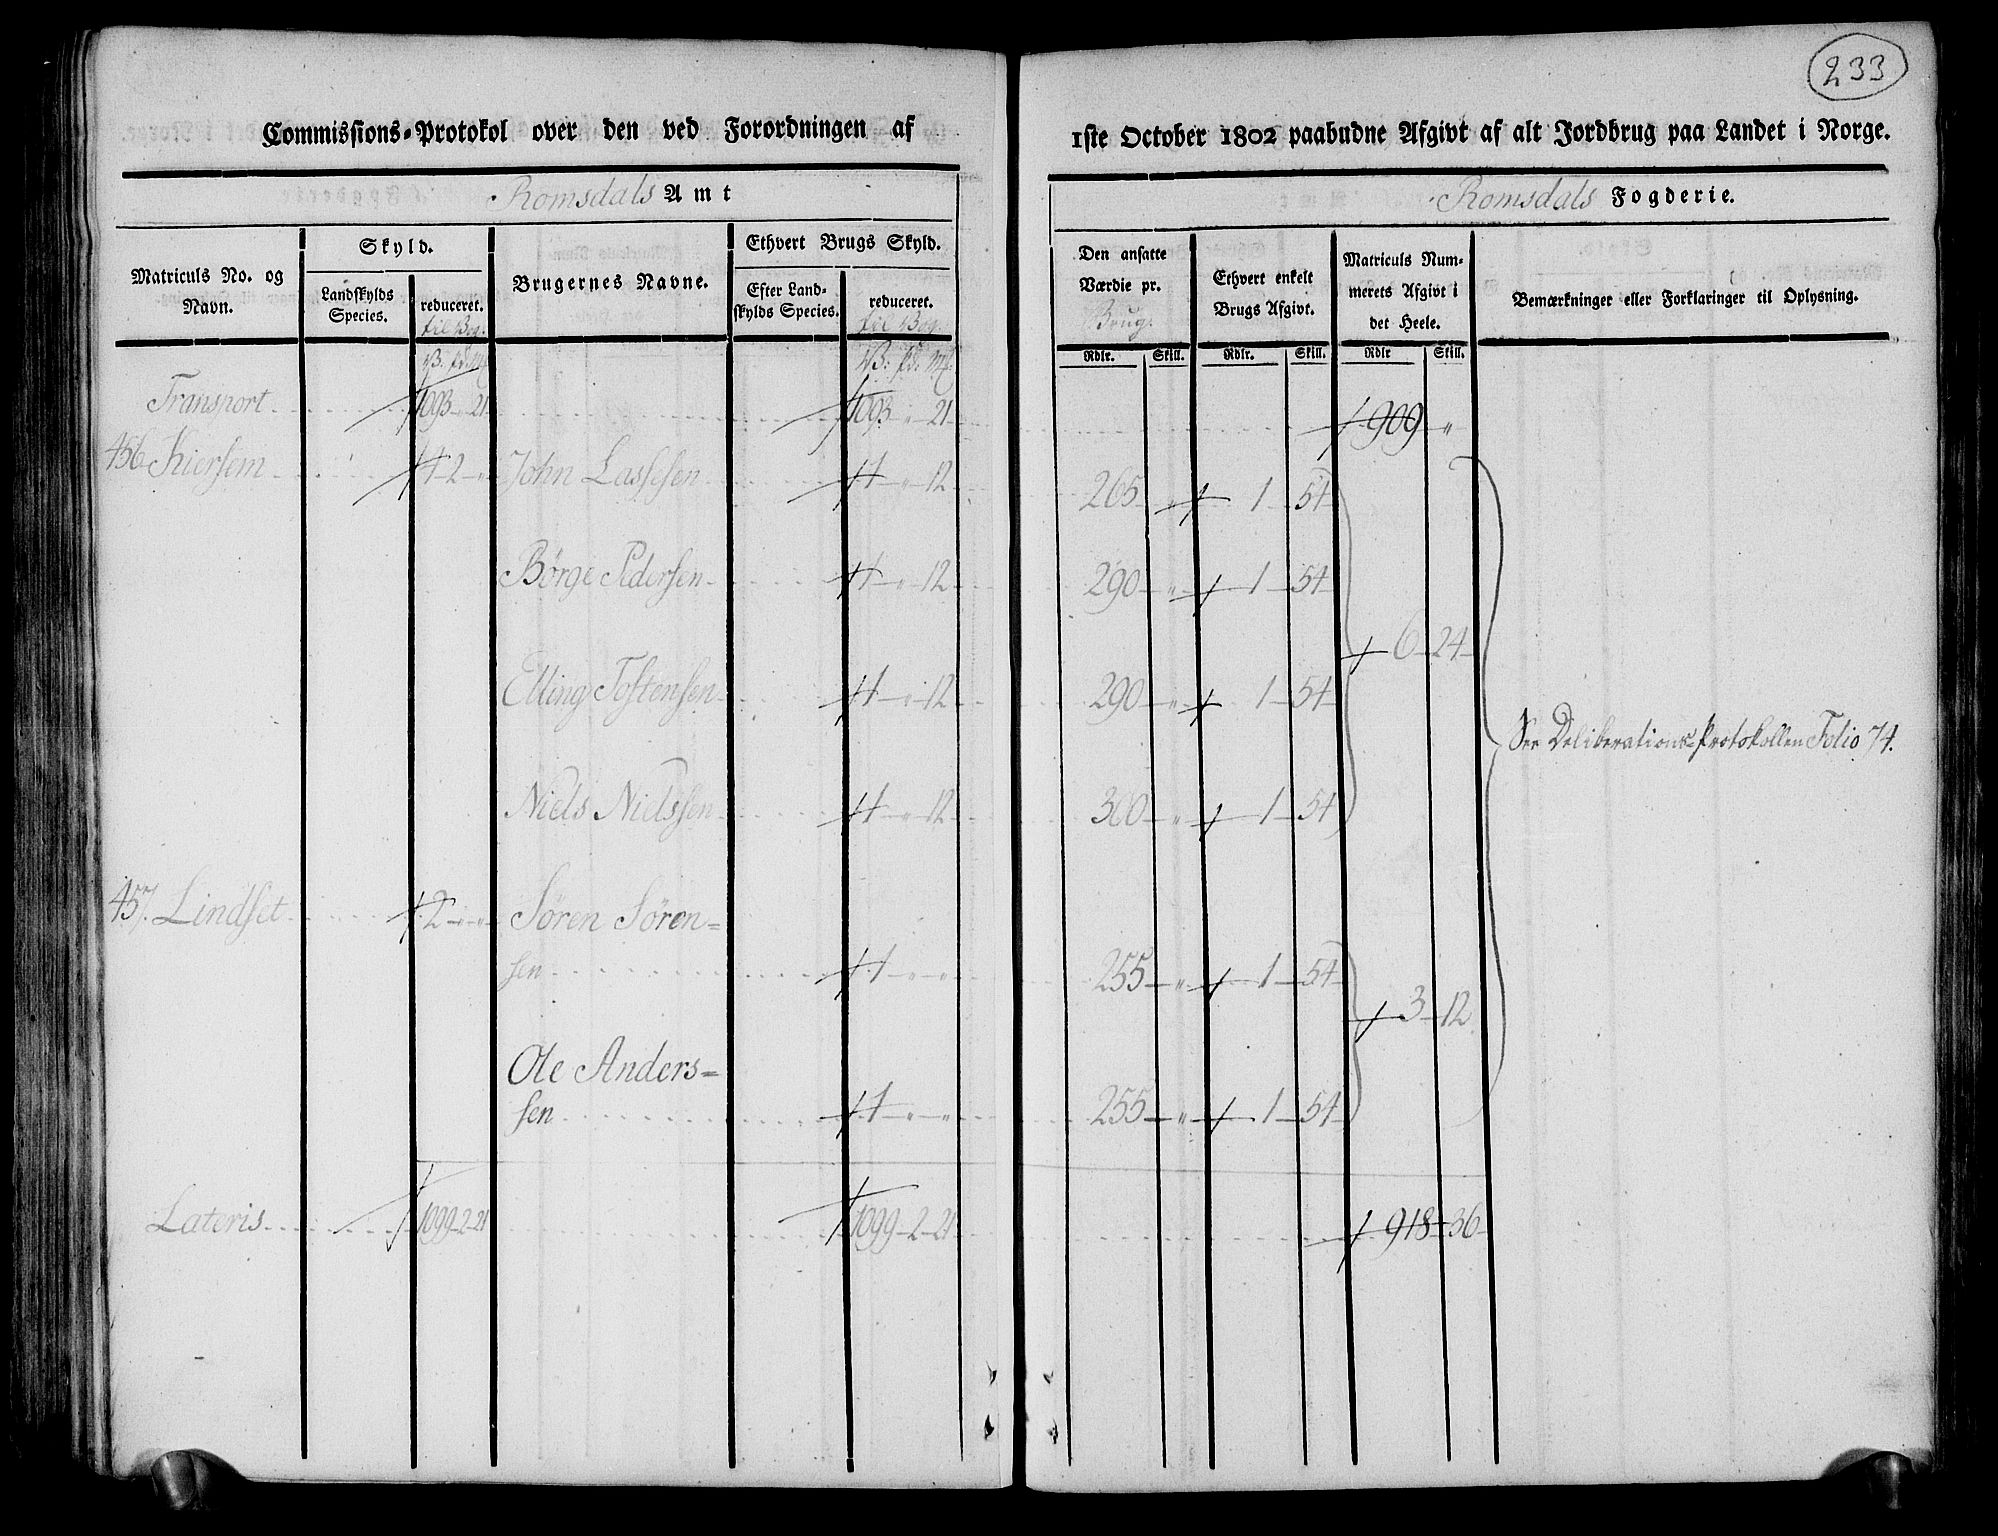 233
Commissions-Protokol over den ved Forordningen af 1ste October 1802 paabudne Afgivt af alt Jordbrug paa Landet i Norge.
Romsdals Amt
Romsdals Fogderie.
Matriculs No. og Navn.
Skyld.
Landskylds Species.
reduceret. til Vog.
Brugernes Navne.
Ethvert Brugs Skyld.
Efter Landskylds Species.
reduceret. til Vog.
Den ansatte Værdie pr. Brug.
Ethvert enkelt Brugs Afgivt.
Matriculs Nummerets Afgivt i det Heele.
Bemærkninger eller Forklaringer til Oplysning.
Rdlr. Skill. Rdlr. Skill. Rdlr Skill.
Transport 1093 " 21 1093 " 21 909 "
456 Kiersem 4 2 " John Lassesen 1 " 12 265 " 1 54
Börge Pedersen 1 " 12 290 " 1 54
6 24
Elling Tostensen 1 " 12 290 " 1 54
See Deliberations-Protokollen Folio 74.
Niels Nielssen 1 " 12 300 " 1 54
457. Lindset 2 " " Sören Sören=
sen 1 " " 255 " 1 54
3 12
Ole Anders=
sen 1 " " 255 " 1 54
Lateris 1099 2 21 1099 2 21 918 36